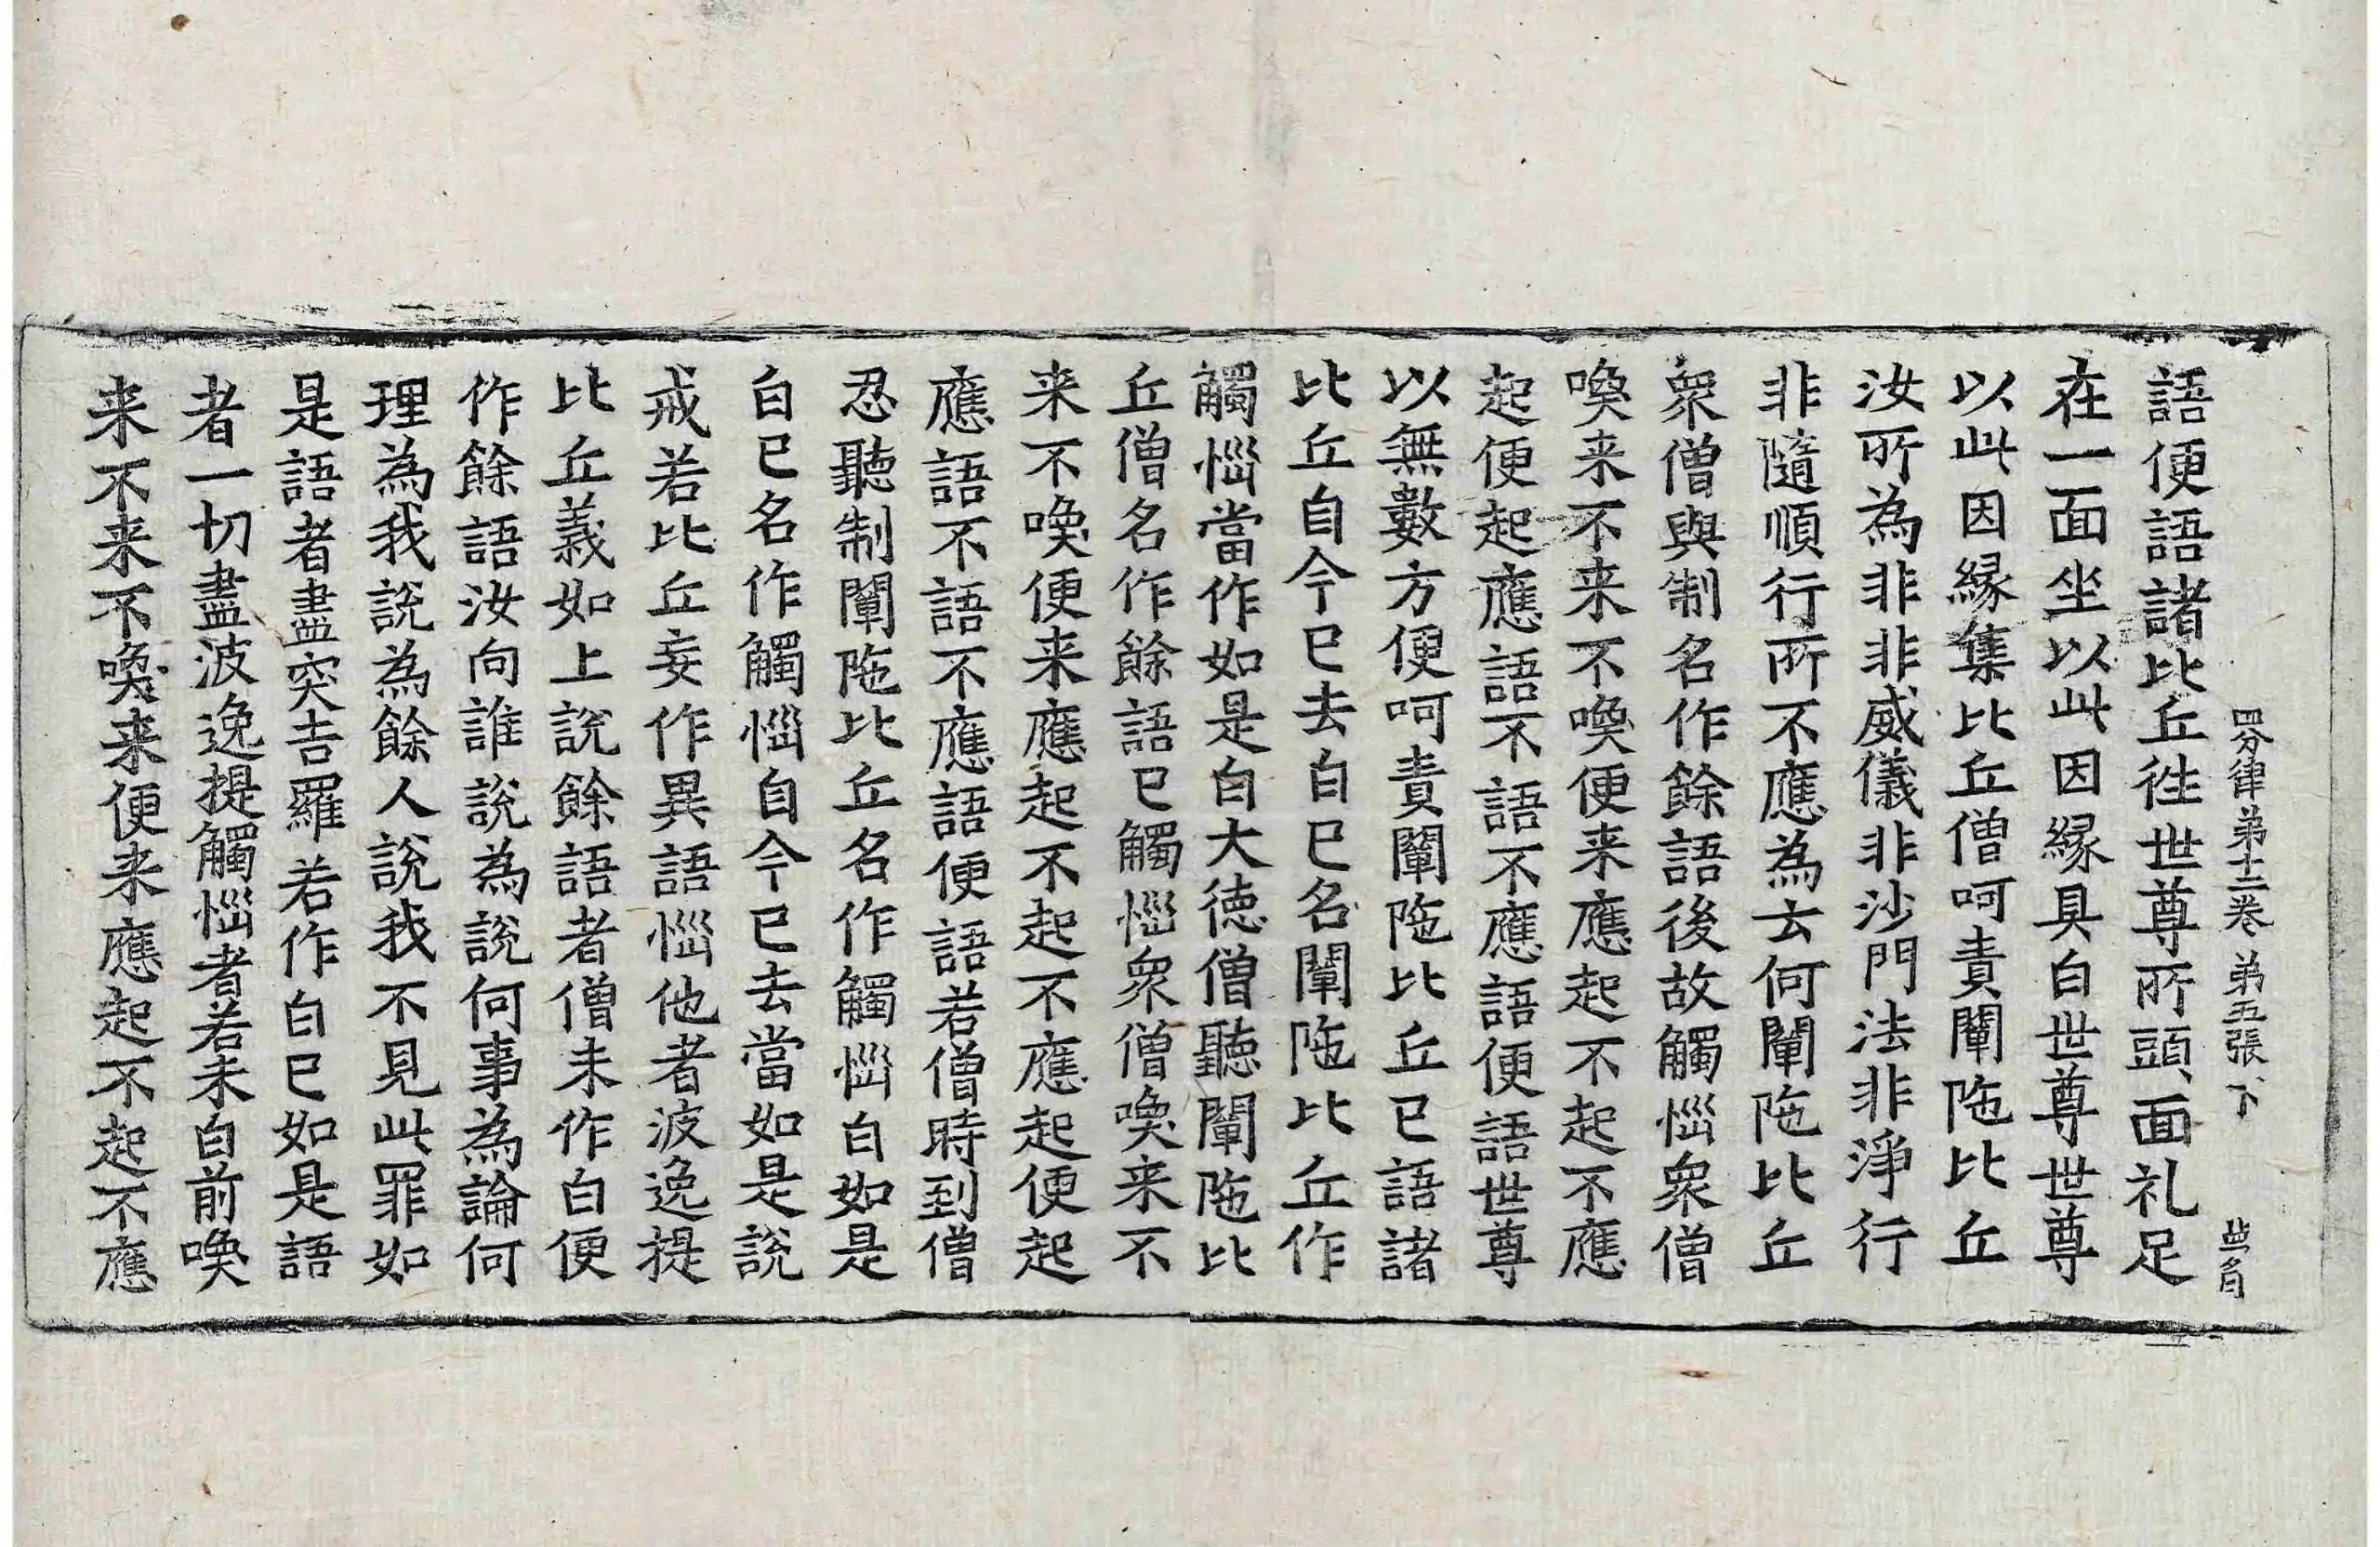 四分律苐十二卷　苐五張　下
語便語諸比丘徃世尊所頭面礼足
在一面坐以此因縁具白世尊世尊
以此因縁集比丘僧呵責闡陁比丘
汝所為非非威儀非沙門法非淨行
非隨順行所不應為云何闡陁比丘
衆僧與制名作餘語後故觸惱衆僧
喚来不来不喚便来應起不起不應
起便起應語不語不應語便語世尊
以無數方便呵責闡陁比丘已語諸
比丘自今已去白已名闡陁比丘作
觸惱當作如是白大徳僧聽闡陁比
丘僧名作餘語已觸惱衆僧喚来不
来不喚便来應起不起不應起便起
應語不語不應語便語若僧時到僧
忍聽制闡陁比丘名作觸惱白如是
白已名作觸惱自今已去當如是說
戒若比丘妄作異語惱他者波逸提
比丘義如上說餘語者僧未作白便
作餘語汝向誰說為說何事為論何
理為我說為餘人說我不見此罪如
是語者盡突吉羅若作白已如是語
者一切盡波逸提觸惱者若未白前喚
来不来不喚来便来應起不起不應